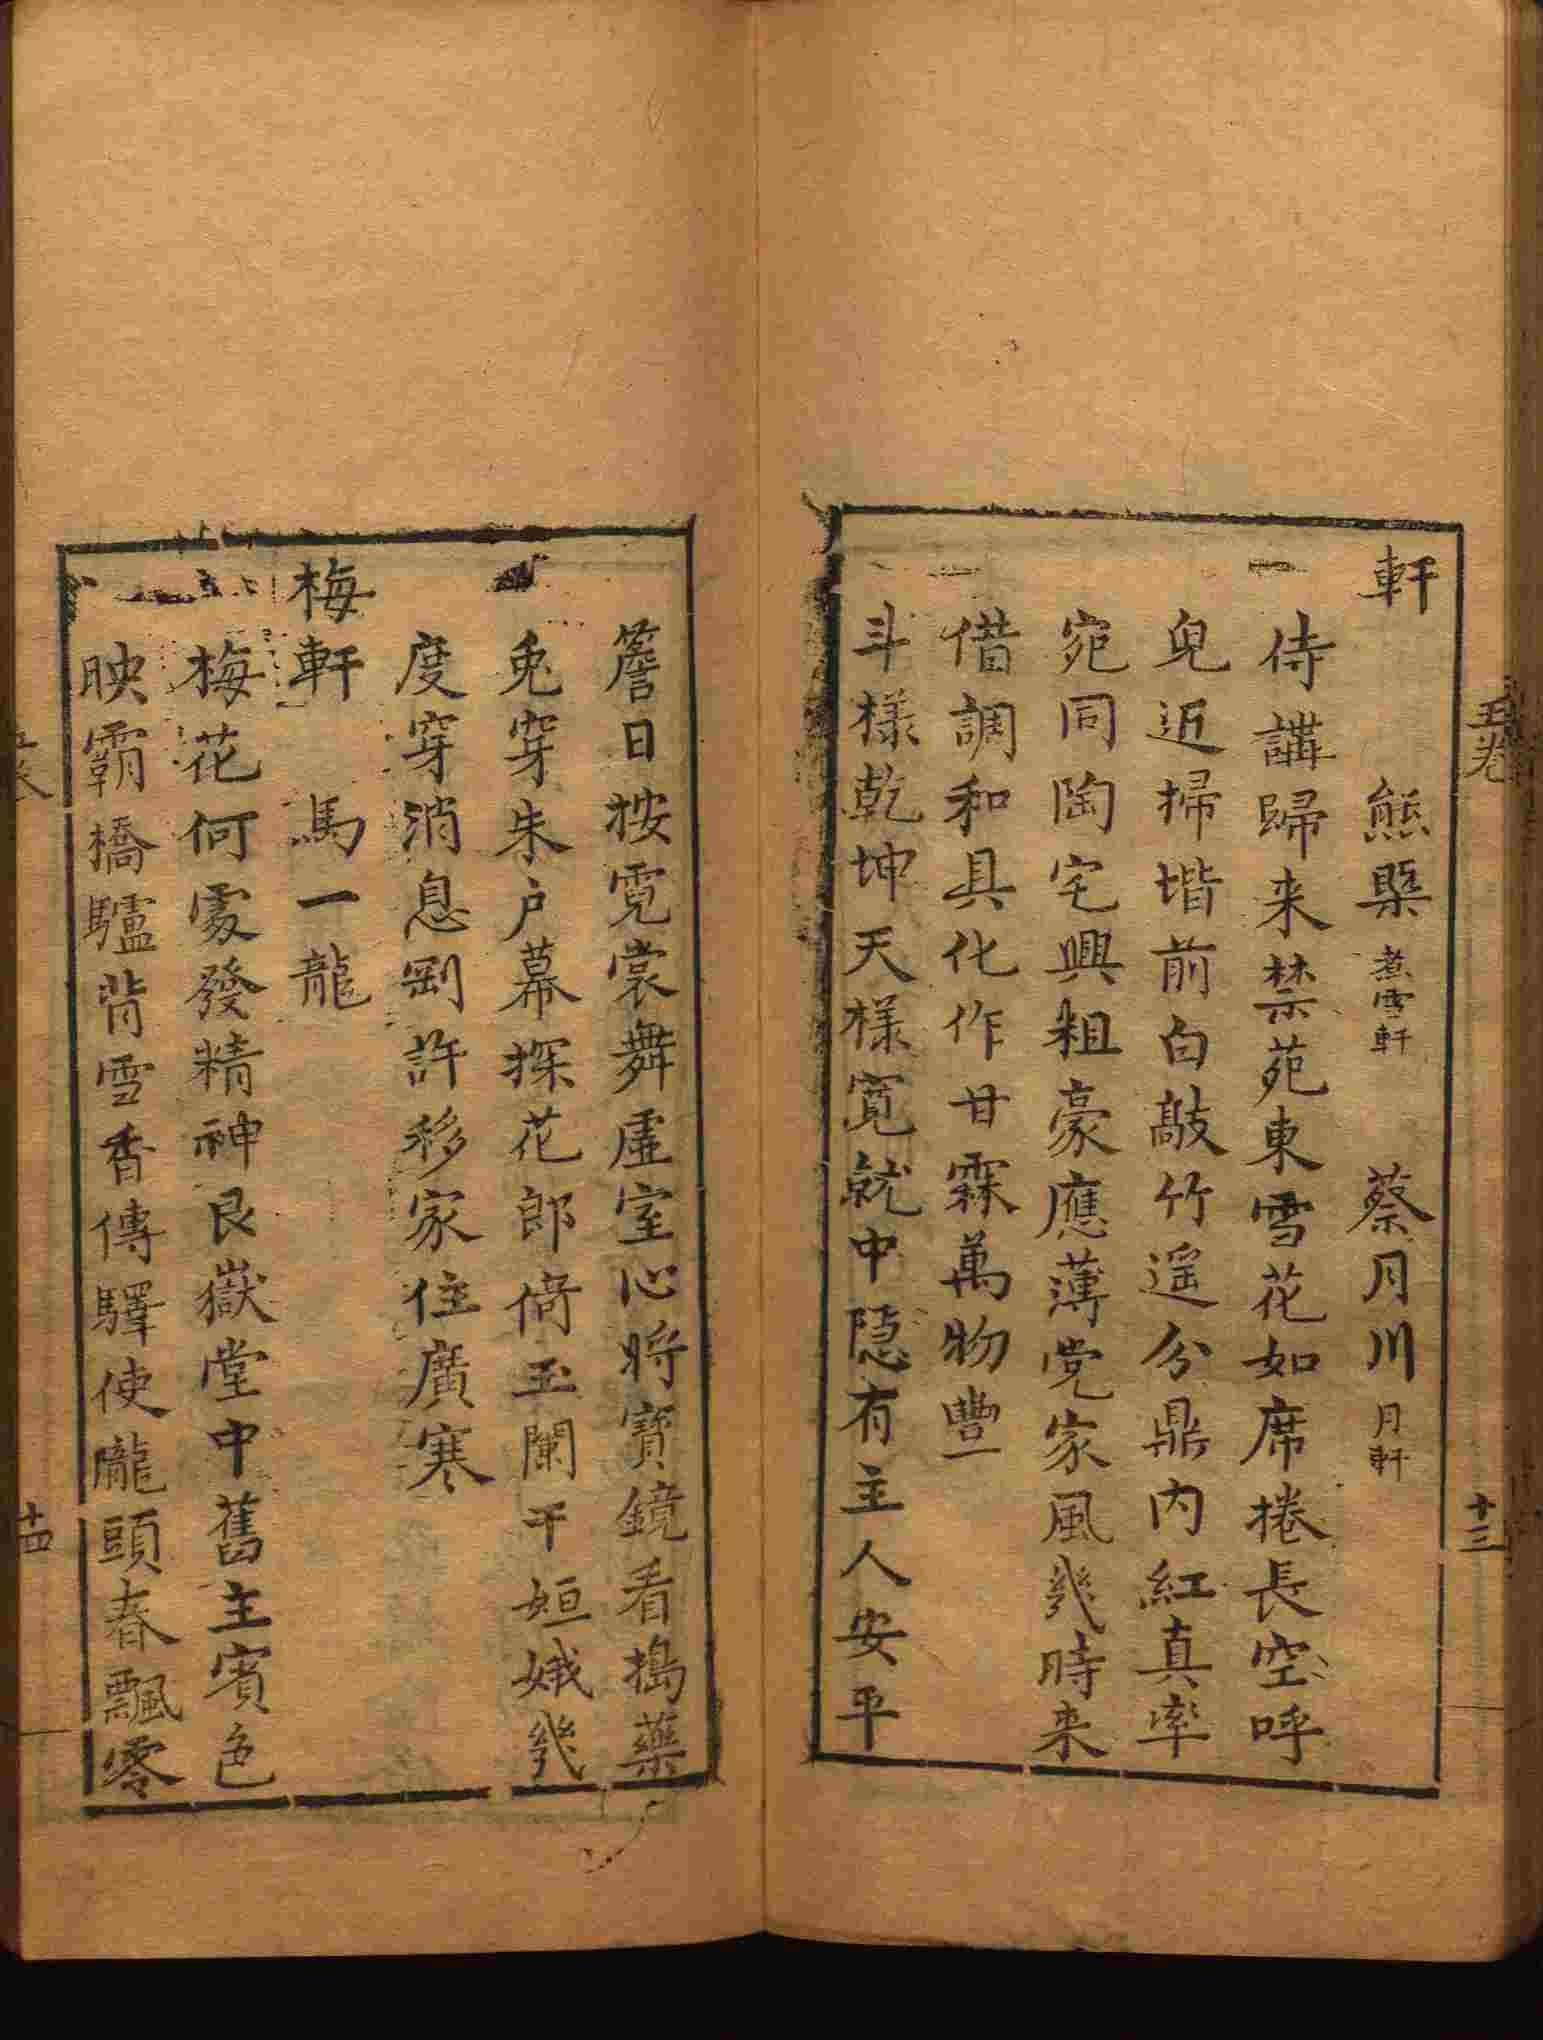 五卷
十三
軒 熊槩煮雪軒 蔡月川月軒
侍講歸来禁苑東雪花如席捲長空呼
兒近掃堦前白敲竹遥分鼎内紅真率
宛同陶宅興粗豪應薄党家風㡬時来
借調和具化作甘霖萬物豐
斗樣乾坤天樣寛就中隱有主人安平
簷日按霓裳舞虚室心将寳鏡看搗藥
兎穿朱户幕探花郎倚玉闌干姮娥㡬
度穿消息剛許移家住廣寒
梅軒 馬一龍
梅花何䖏發精神艮嶽堂中舊主賓色
映霸橋驢背雪香傳驛使隴頭春飄零
十四